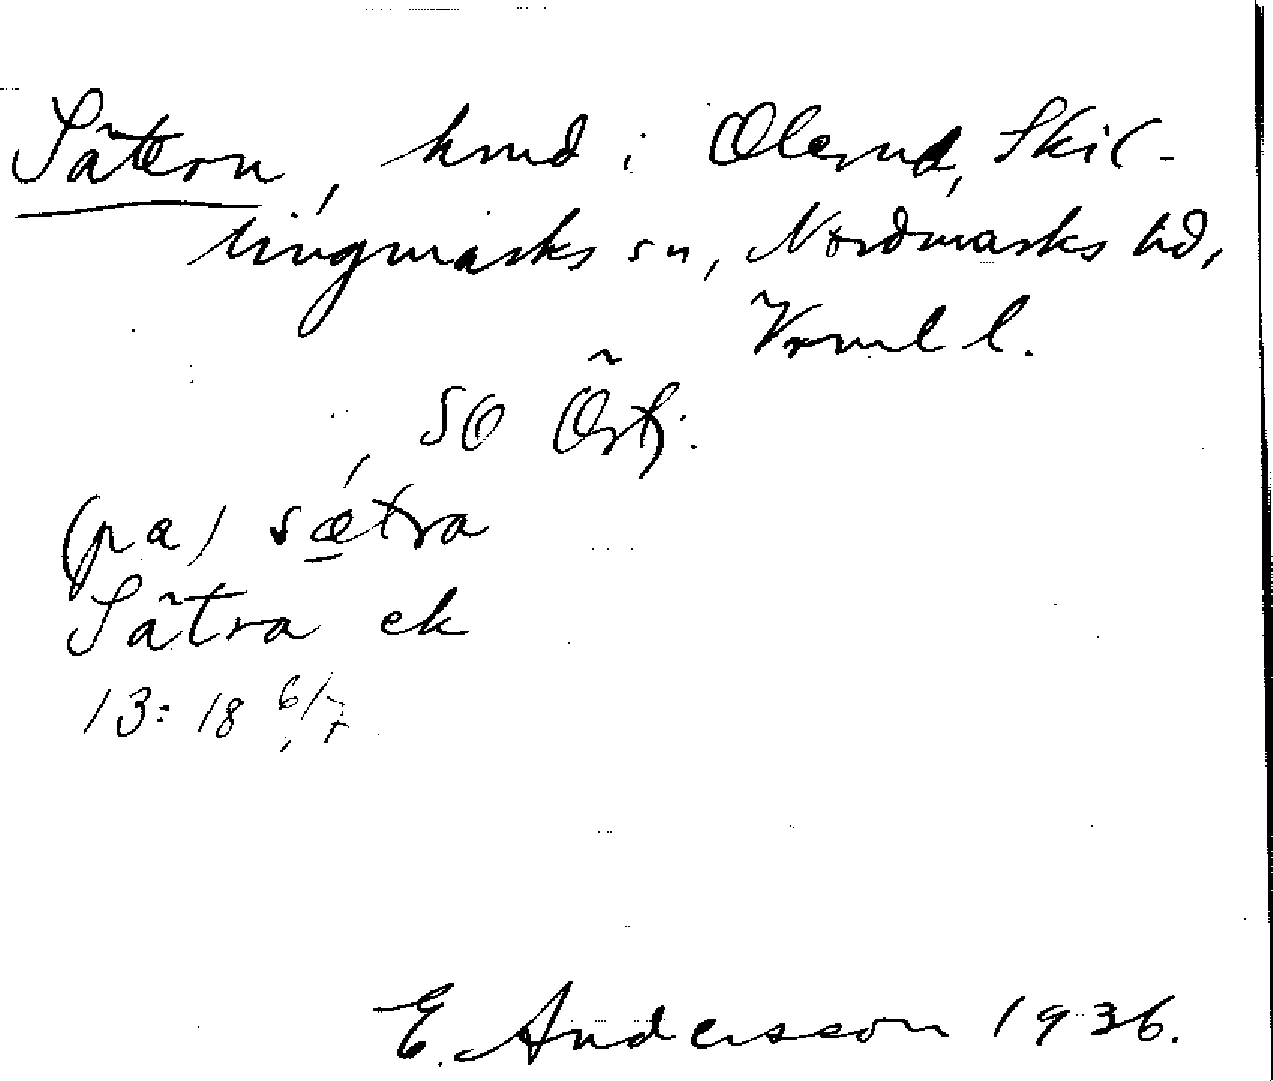 Sätern, hmd i Olerud, Skil-
lingmarks sn, Nordmarks hd,
Vrml l.
SO Östj.
(pa) sætra
Sätra ek
13: 18 6/7
E. Andersson 1936.